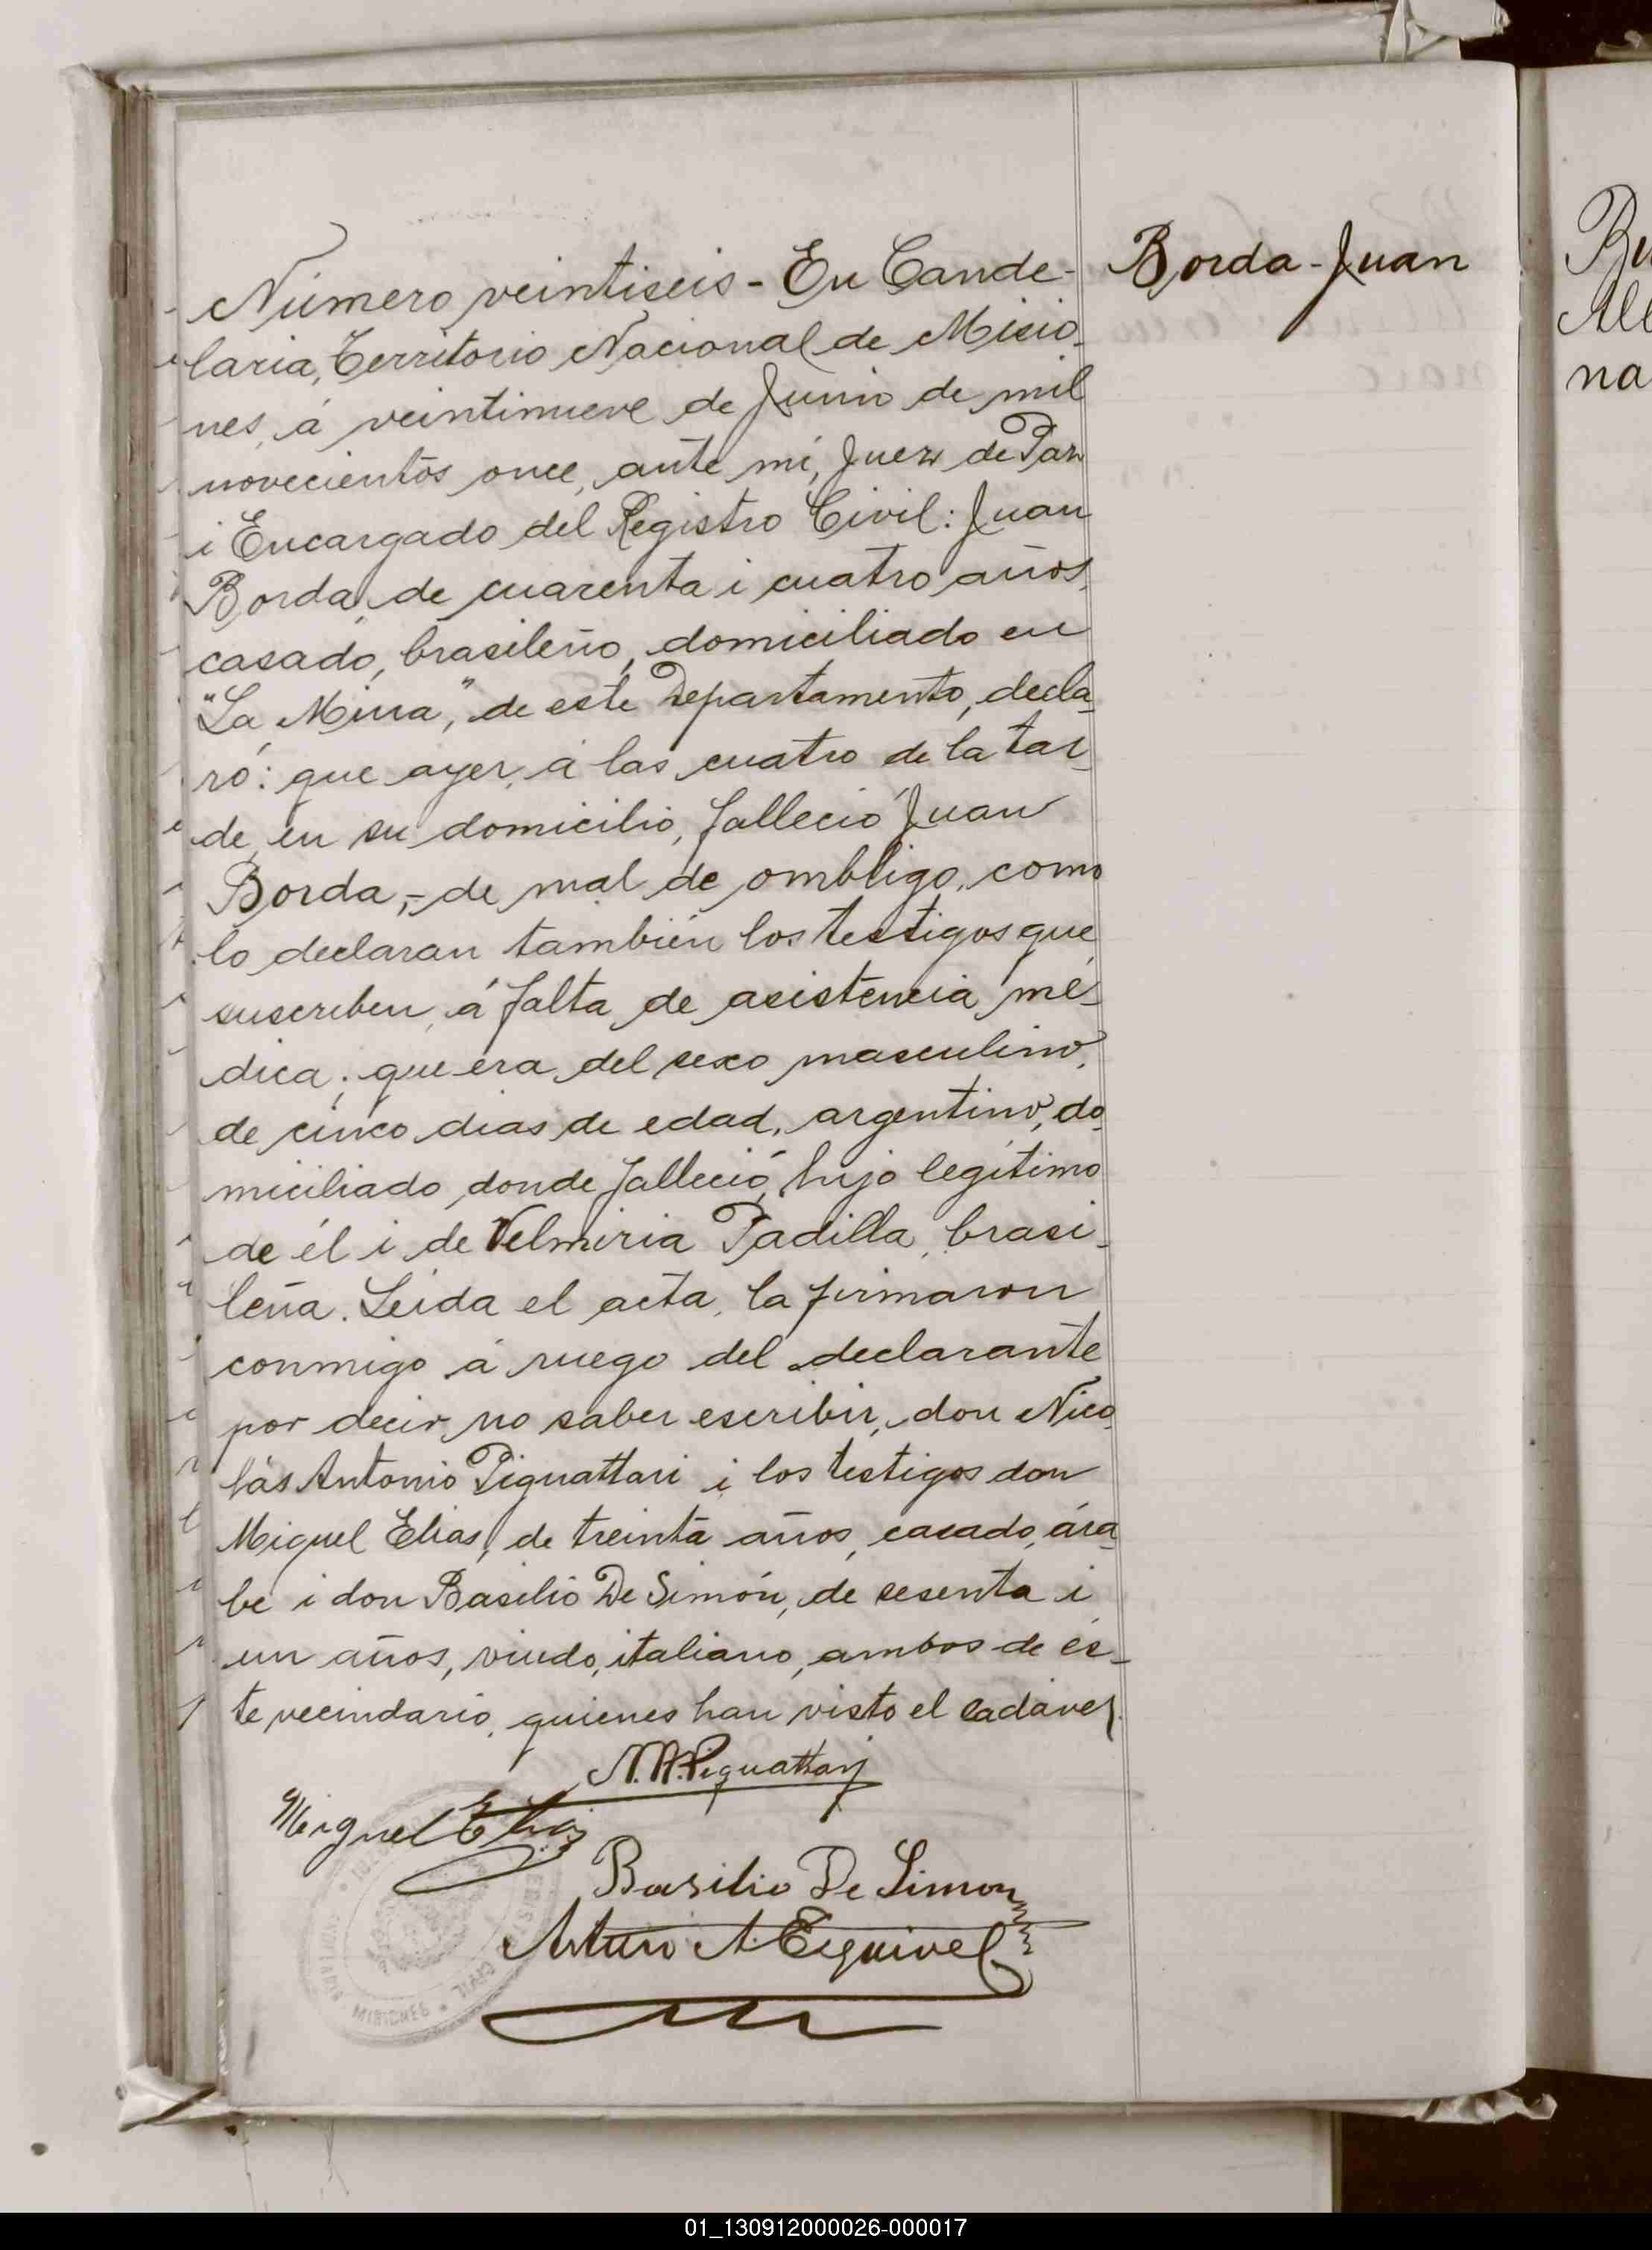 Número veintiseis - En Cande-
laria, Territorio Nacional de Misio-
nes, á veintinueve de Junio de mil
novecientos once, ante mí, Juez de Paz
i Encargado del Registro Civil: Juan
Borda, de cuarenta i cuatro años,
casado, brasileño, domiciliado en
"La Mina," de este Departamento, decla-
ró: que ayer, á las cuatro de la tar-
de, en su domicilio, falleció Juan
Borda,- de mal de ombligo, como
lo declaran también los testigos que
suscriben, á falta de asistencia mé-
dica; que era del sexo masculino,
de cinco dias de edad, argentino, do-
miciliado donde falleció, hijo legítimo
de él i de Velmiria Padilla, brasi-
leña. Leida el acta, la firmaron
conmigo á ruego del declarante
por decir no saber escribir, don Nico-
lás Antonio Piguattari i los testigos don
Miguel Elias, de treinta años, casado, ára-
be i don Basilio De Simón, de sesenta i
un años, viudo, italiano, ambos de és-
te vecindario, quienes han visto el cadáver.
N. A. Piguattari
Miguel Elias
Basilio De Simon
Arturo A. Esquivel
MISIONES
CIVIL
Borda - Juan
na
01_130912000026-000017